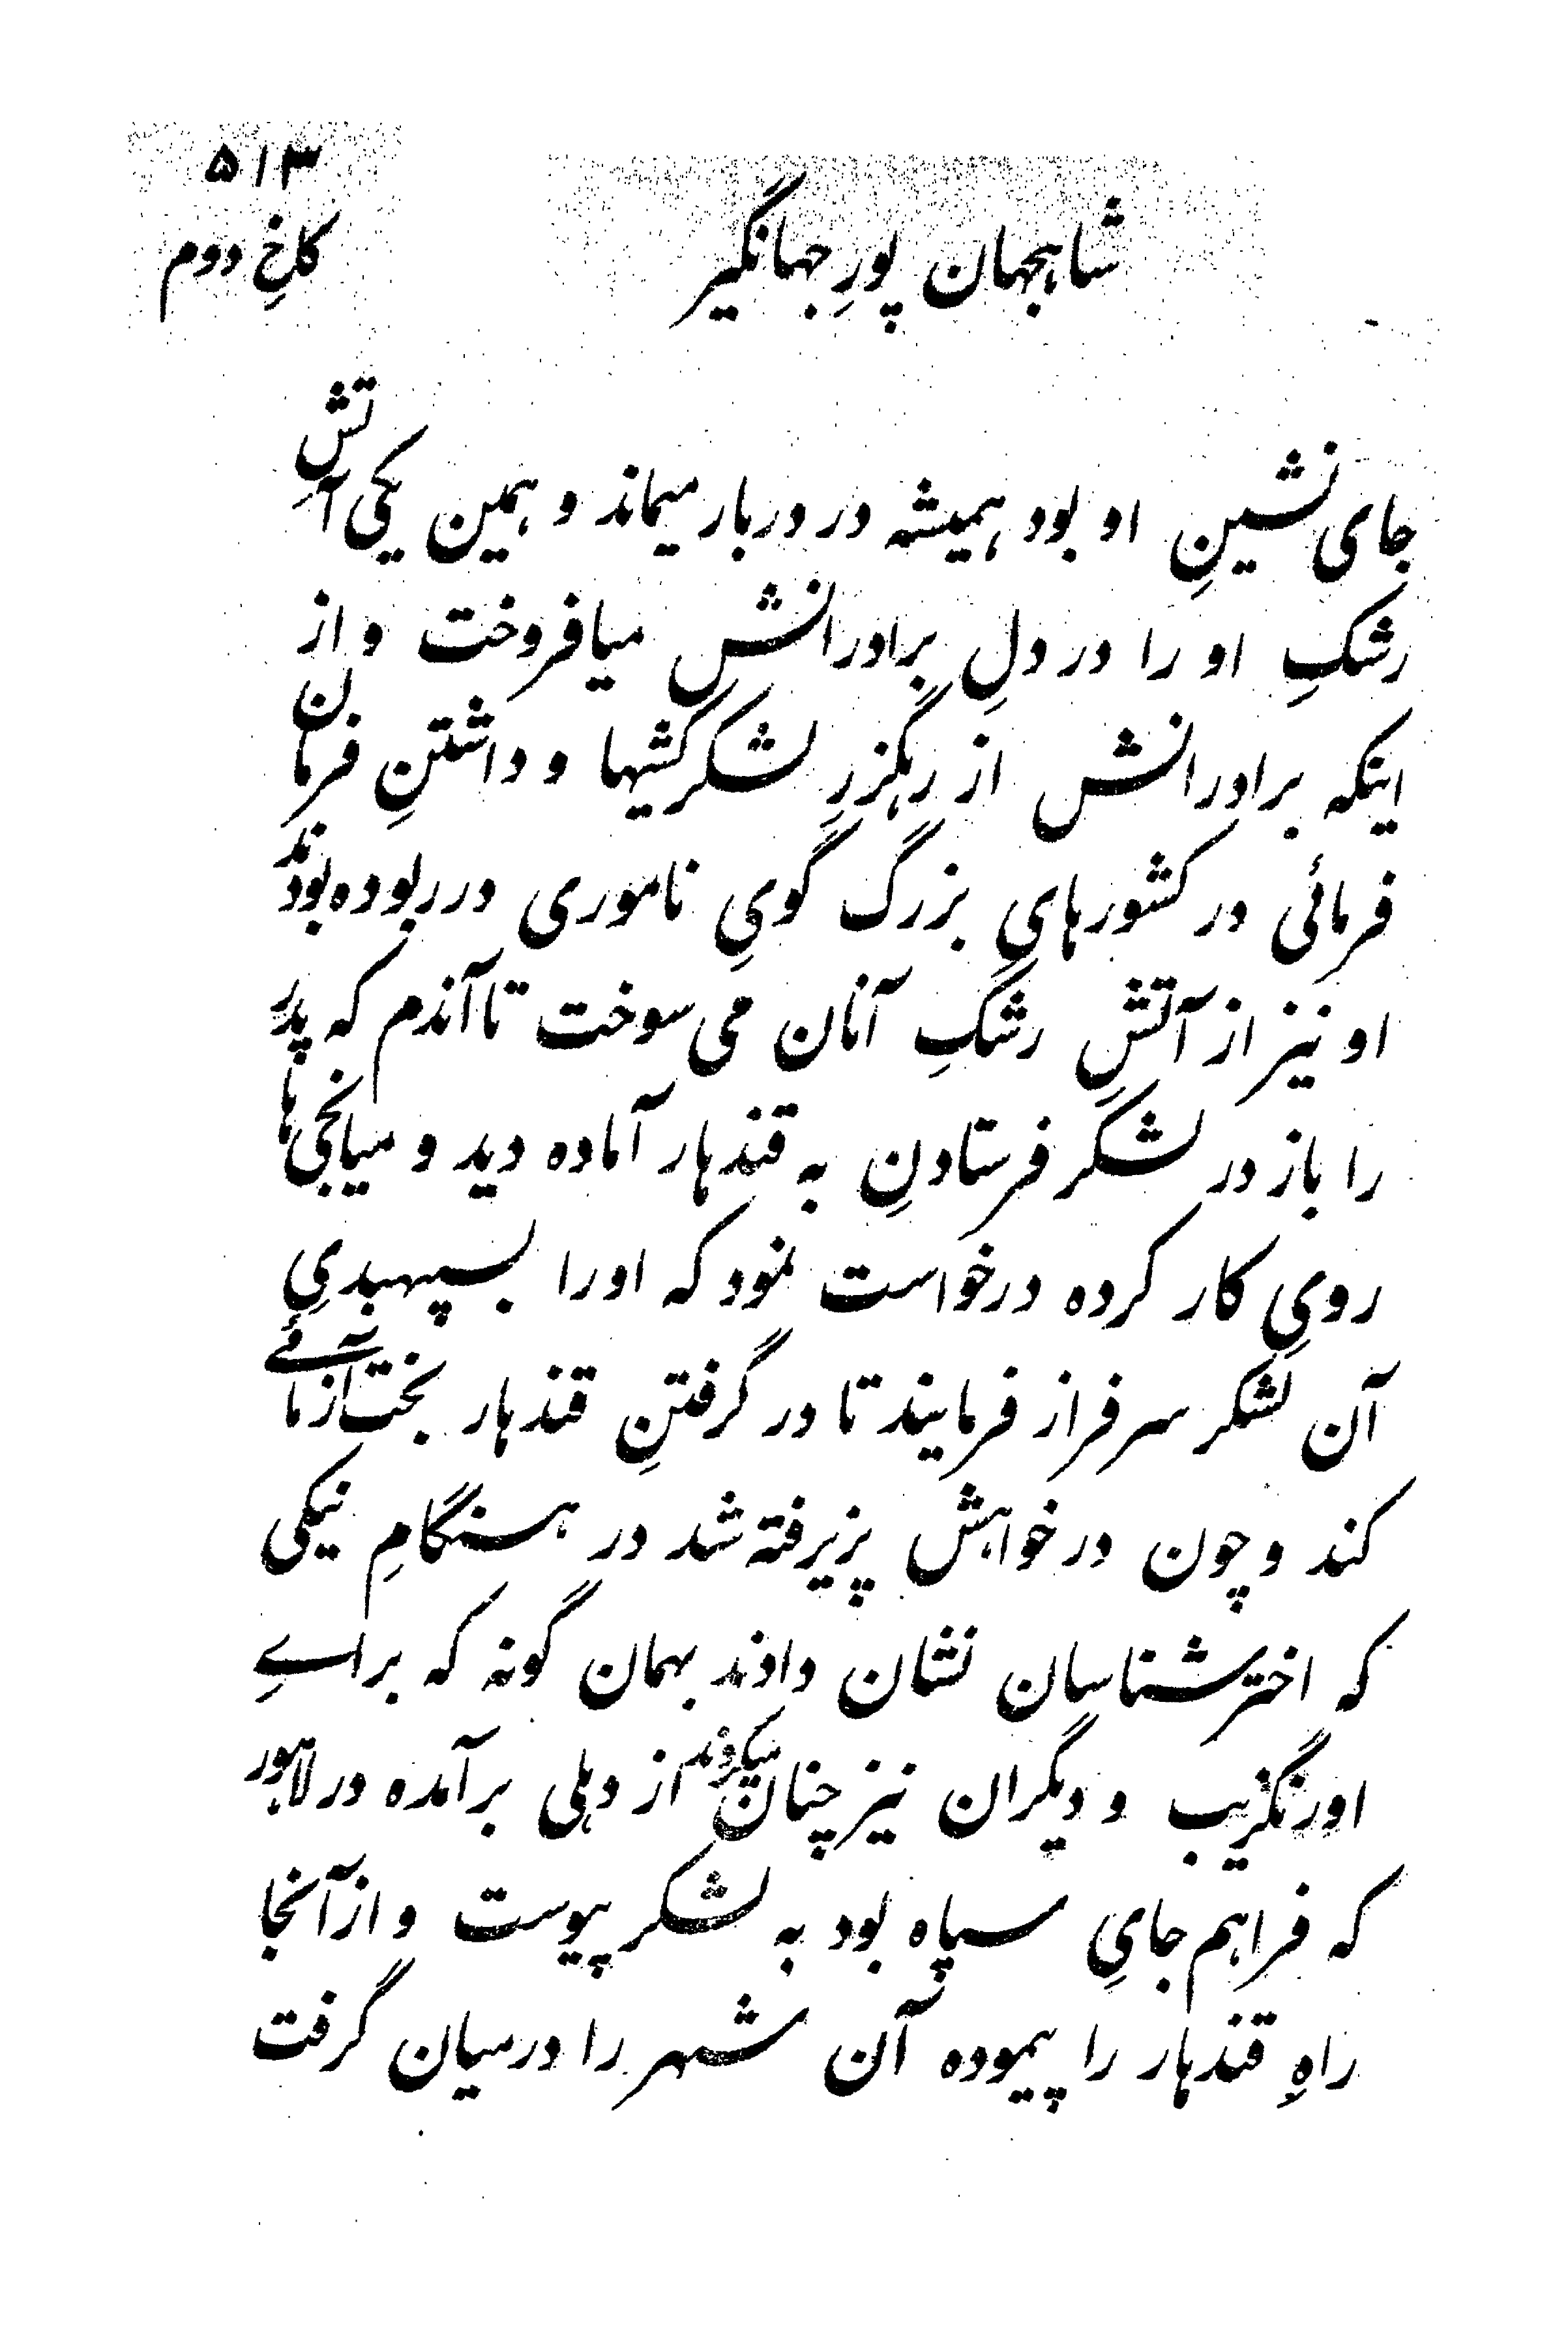 ۵۱۳
شاهجهان پورِ جهانگیر
کاخِ دوم
جای نشینِ او بود همیشه در دربار میماند و همین یکی آتشِ
رشکِ او را در دلِ برادرانش میافروخت و از
اینکه برادرانش از رهگزرِ لشکرکشیها و داشتنِ فرمان
فرمائی در کشورهایِ بزرگ گویِ ناموری در ربوده بودند
او نیز از آتشِ رشکِ آنان می سوخت تا آندم که پدر
را باز در لشکر فرستادنِ به قندهار آماده دید و میانجی‌ها
رویِ کار کرده درخواست نمود که او را بسپهبدیِ
آن لشکر سرفراز فرمایند تا در گرفتنِ قندهار بخت‌آزمائے
کند و چون درخواهش پزیرفته شد در هنگامِ نیکی
که اخترشناسان نشان دادند بهمان گونه که براےِ
اورنگزیب و دیگران نیز چنان میکردند از دهلی برآمده در لاهور
که فراهم جایِ سپاه بود به لشکر پیوست و از آنجا
راهِ قندهار را پیموده آن شهر را درمیان گرفت